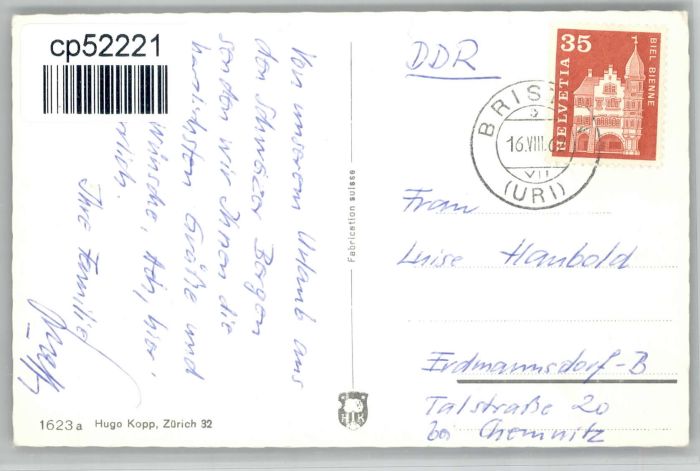 cp52221
Von unserem Urlaub aus
den Schweizer Bergen
senden wir Ihnen die
herzlichsten Grüße und
Wünsche, hier,
Ihre Familie
DDR
35
HELVETIA
BIEL BIENNE
16.VIII.6
VII
(URI)
Frau
Luise Haubold
Erdmannsdorf-B
Talstraße 20
bei Chemnitz
Fabrication suisse
HK
1623a Hugo Kopp, Zürich 32